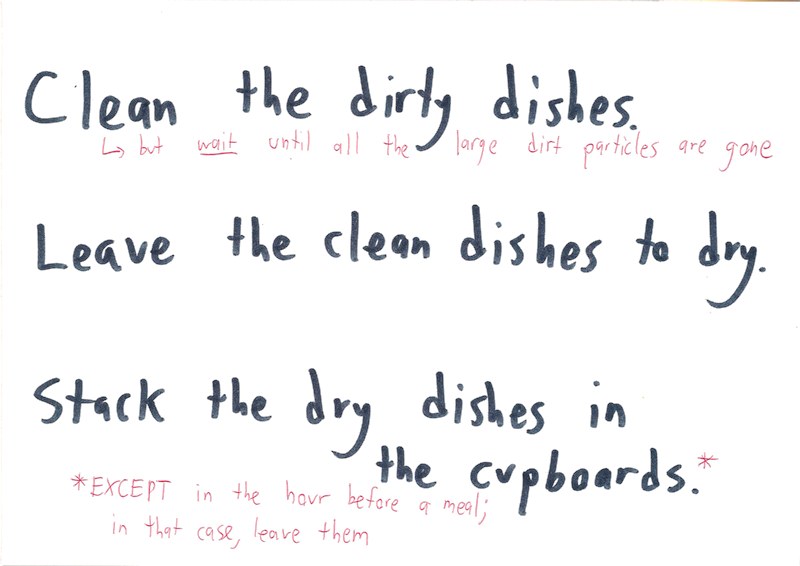 Clean the dirty dishes.
↳ but wait until all the large dirt particles are gone
Leave the clean dishes to dry.
Stack the dry dishes in
the cupboards.*
*EXCEPT in the hour before a meal;
in that case, leave them